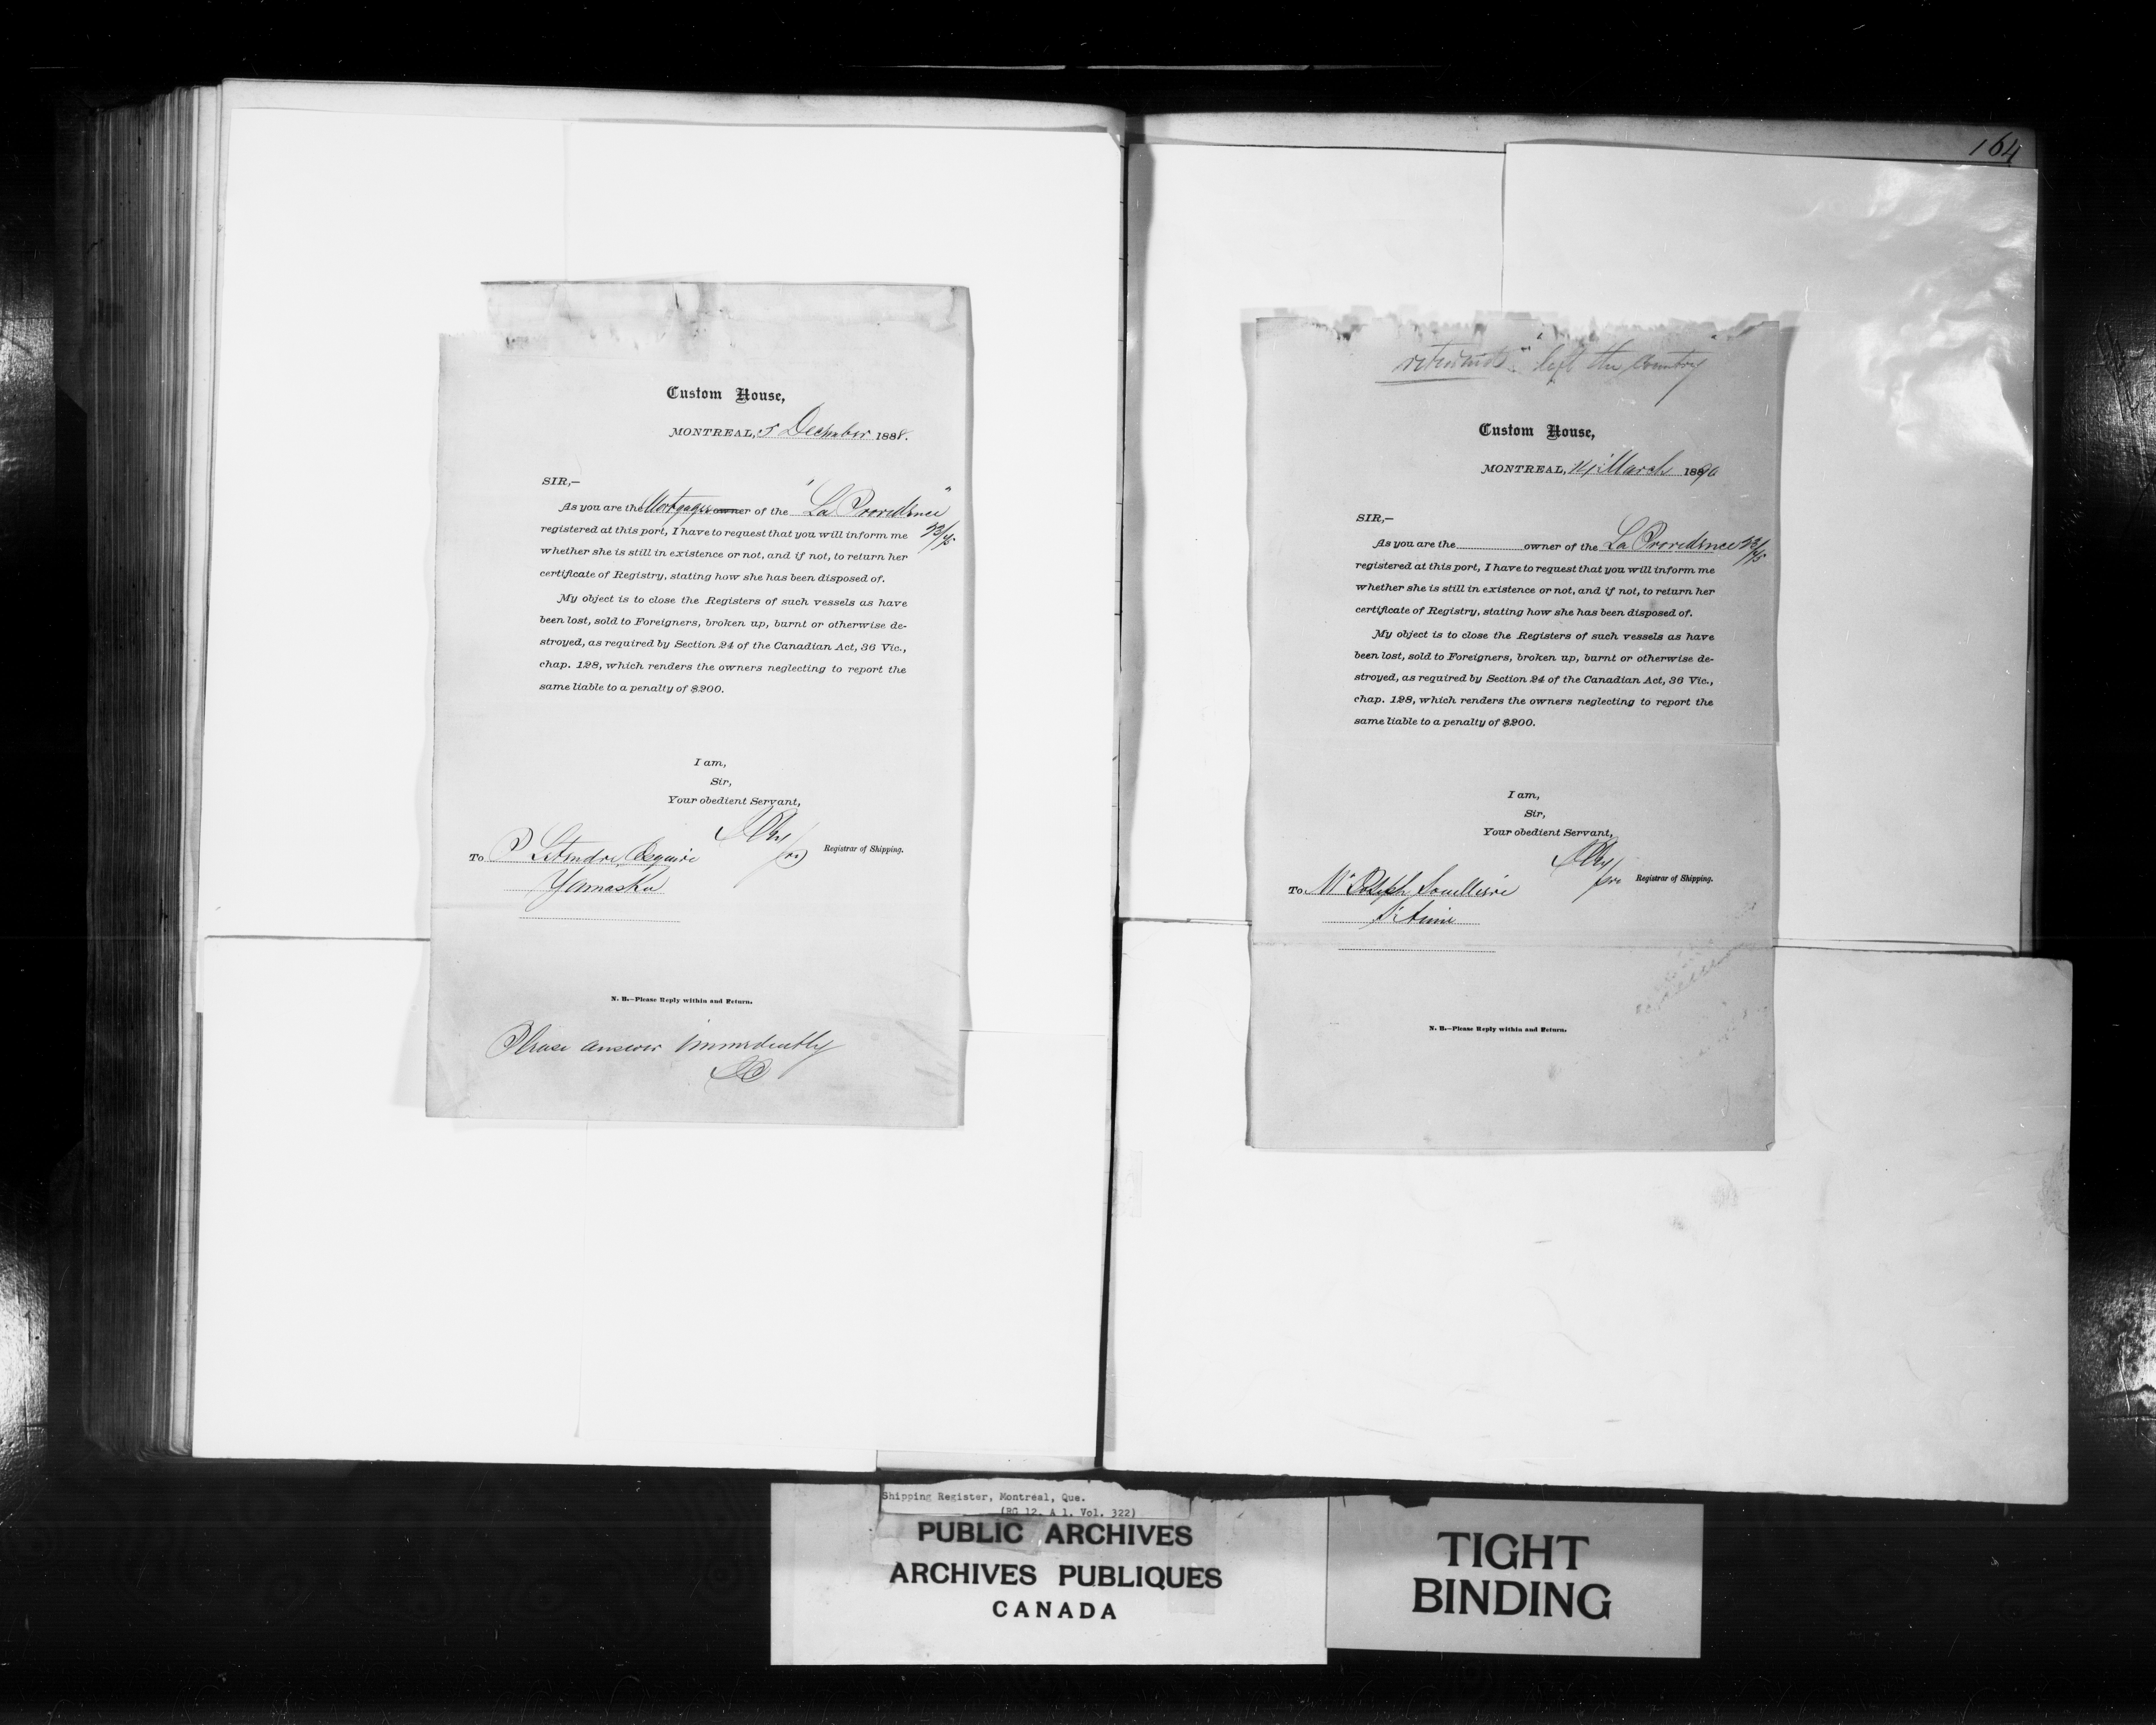 Custom House,
MONTREAL, 5 December 1888.
SIR,—
As you are the Mortgagee owner of the "La Providence"
registered at this port, I have to request that you will inform me 23/75
whether she is still in existence or not, and if not, to return her
certificate of Registry, stating how she has been disposed of.
My object is to close the Registers of such vessels as have
been lost, sold to Foreigners, broken up, burnt or otherwise de-
stroyed, as required by Section 24 of the Canadian Act, 36 Vic.,
chap. 128, which renders the owners neglecting to report the
same liable to a penalty of $200.
I am,
Sir,
Your obedient Servant,
Registrar of Shipping.
To P Letendre Esquire
Yamaska
N. B.—Please Reply within and Return.
Please answer immediently
164
returned "left the Country"
Custom House,
MONTREAL, 14 March 1890
SIR,—
As you are the owner of the La Providence 23/75
registered at this port, I have to request that you will inform me
whether she is still in existence or not, and if not, to return her
certificate of Registry, stating how she has been disposed of.
My object is to close the Registers of such vessels as have
been lost, sold to Foreigners, broken up, burnt or otherwise de-
stroyed, as required by Section 24 of the Canadian Act, 36 Vic.,
chap. 128, which renders the owners neglecting to report the
same liable to a penalty of $200.
I am,
Sir,
Your obedient Servant,
Registrar of Shipping.
To Mr Joseph
St Aimé
N. B.—Please Reply within and Return.
Shipping Register, Montréal, Que.
(RG 12, A 1, Vol. 322)
PUBLIC ARCHIVES
ARCHIVES PUBLIQUES
CANADA
TIGHT
BINDING